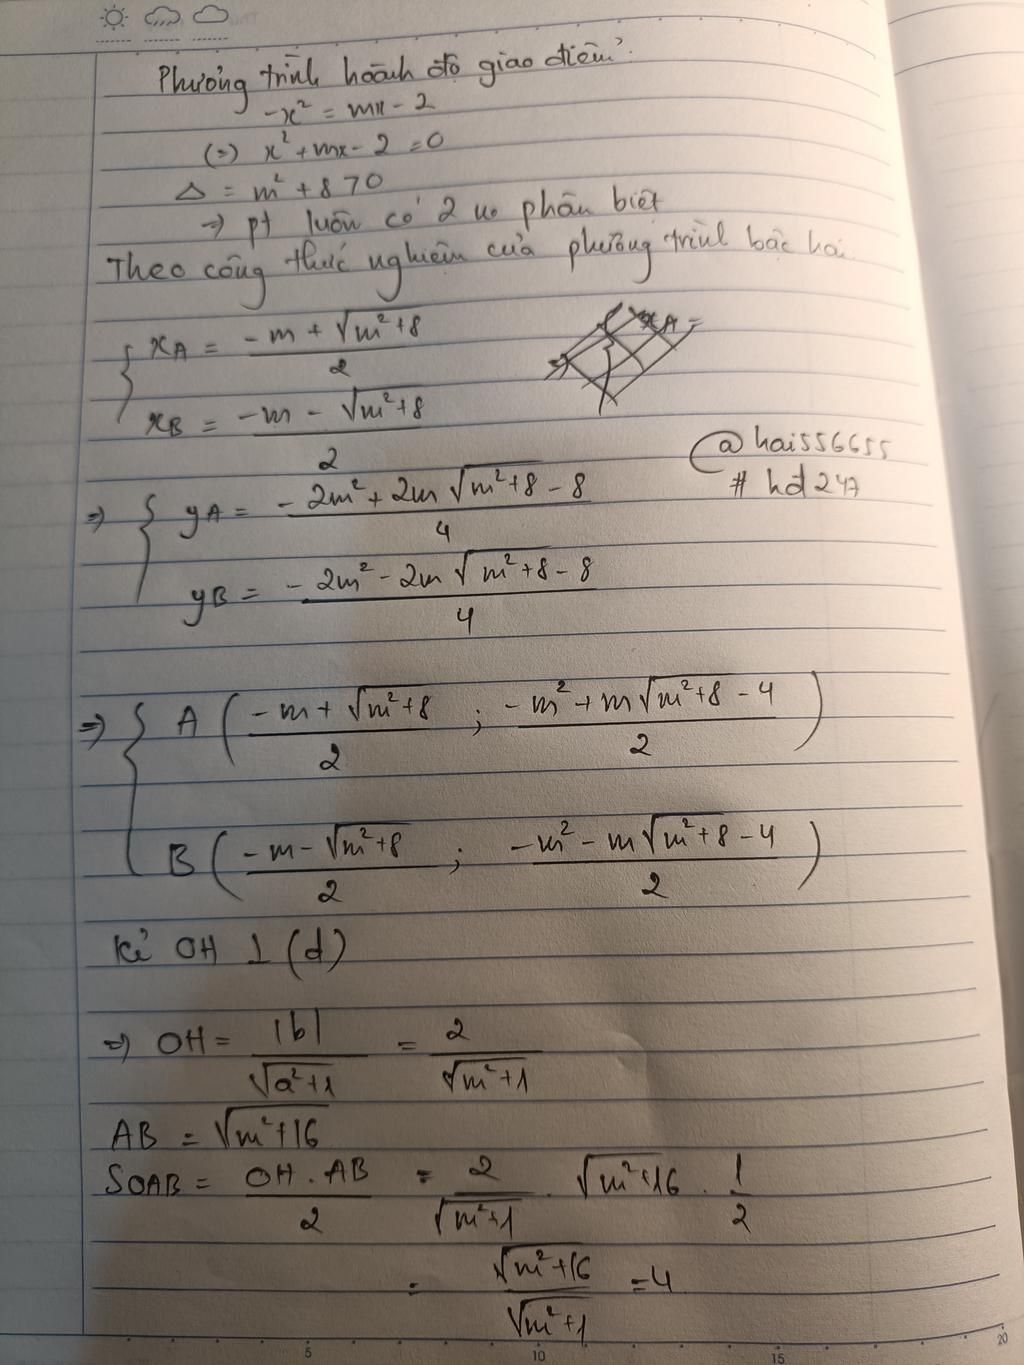 Phương trình hoành độ giao điểm:
-x² = mx - 2
(=) x² + mx - 2 = 0
Δ = m² + 8 > 0
→ pt luôn có 2 no phân biệt
Theo công thức nghiệm của phương trình bậc hai
{ xA = (-m + √(m²+8))/2
xA =
xB = (-m - √(m²+8))/2
@hai556655
# hd247
⇒ { yA = (-2m² + 2m√(m²+8) - 8)/4
yB = (-2m² - 2m√(m²+8) - 8)/4
⇒ { A ( (-m + √(m²+8))/2 ; (-m² + m√(m²+8) - 4)/2 )
B ( (-m - √(m²+8))/2 ; (-m² - m√(m²+8) - 4)/2 )
Kẻ OH ⊥ (d)
⇒ OH = |b|/√(a²+1) = 2/√(m²+1)
AB = √(m²+16)
SOAB = (OH . AB)/2 = 2/√(m²+1) . √(m²+16) . 1/2
= √(m²+16)/√(m²+1) = 4
5 10 15 20